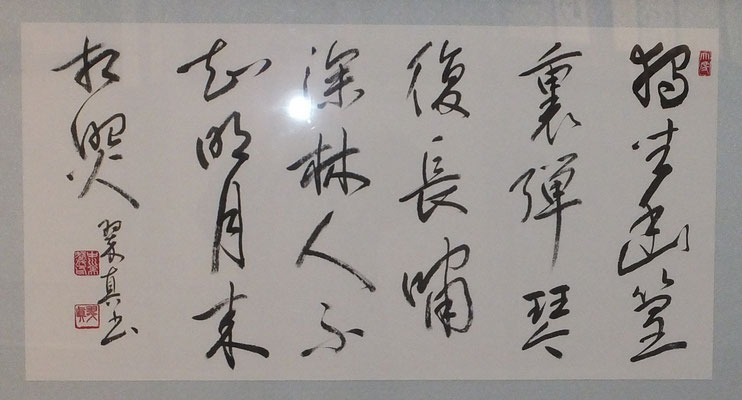 獨坐幽篁
裏弾琴
復長嘯
深林人不
知明月来
相照
翠真书